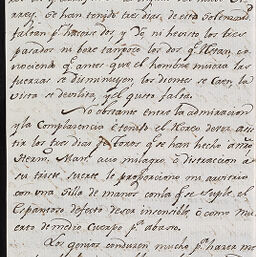 arrey. Se han tenido tres dias de esta Solemnid.
faltan p.ª hacerse dos, y Yo ni he visto los tres
pasados ni hare tampoco los dos q.e restan, co
nociendo q.e antes que el hombre muera las
fuerzas se disminuyen, los dientes se caen, la
vista se devilita, y el gusto falta.
No obstante entre la admiracion
y la Complacencia é tenido el
tir los tres dias Toros q.e se han hecho á mi
milagro, ó distraccion á
su triste suerte, le proporciono mi arvitrio
con una Silla de manos con la q.e se suple el
Espantozo defecto de ser insensible, ó como mu
erto de medio Cuerpo p.ª abaxo.
Los genios conducen mucho p.ª hacer me